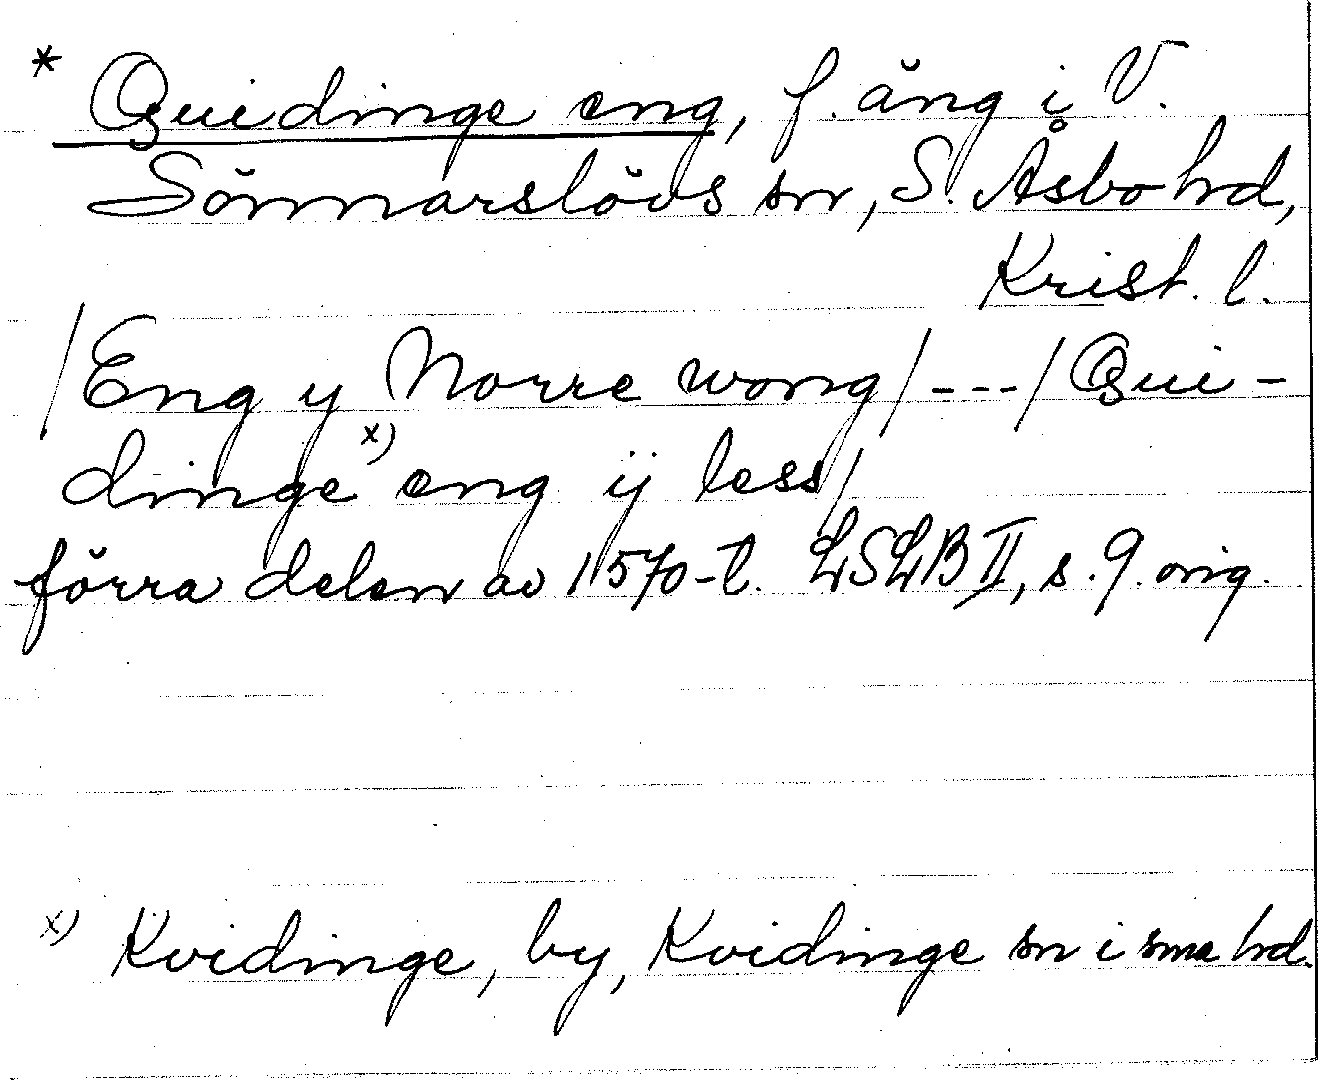 * Quidinge eng, f. äng i V.
Sönnarslövs sn, S. Åsbo hd,
Krist. l.
/Eng y Norre wong/---/Qui-
dinge x) eng ij less/
förra delen av 1570-t. LSLB II, s. 9. orig.
x) Kvidinge, by, Kvidinge sn i sma hd.